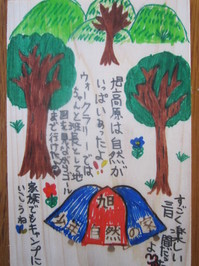 旭高原は自然が
いっぱいあったよ!!
ウォークラリーでは
ちゃんと班長として地
図を見ながらゴール
まで行けたよ
すごく楽しい
旭
自然の家
家族でもキャンプに